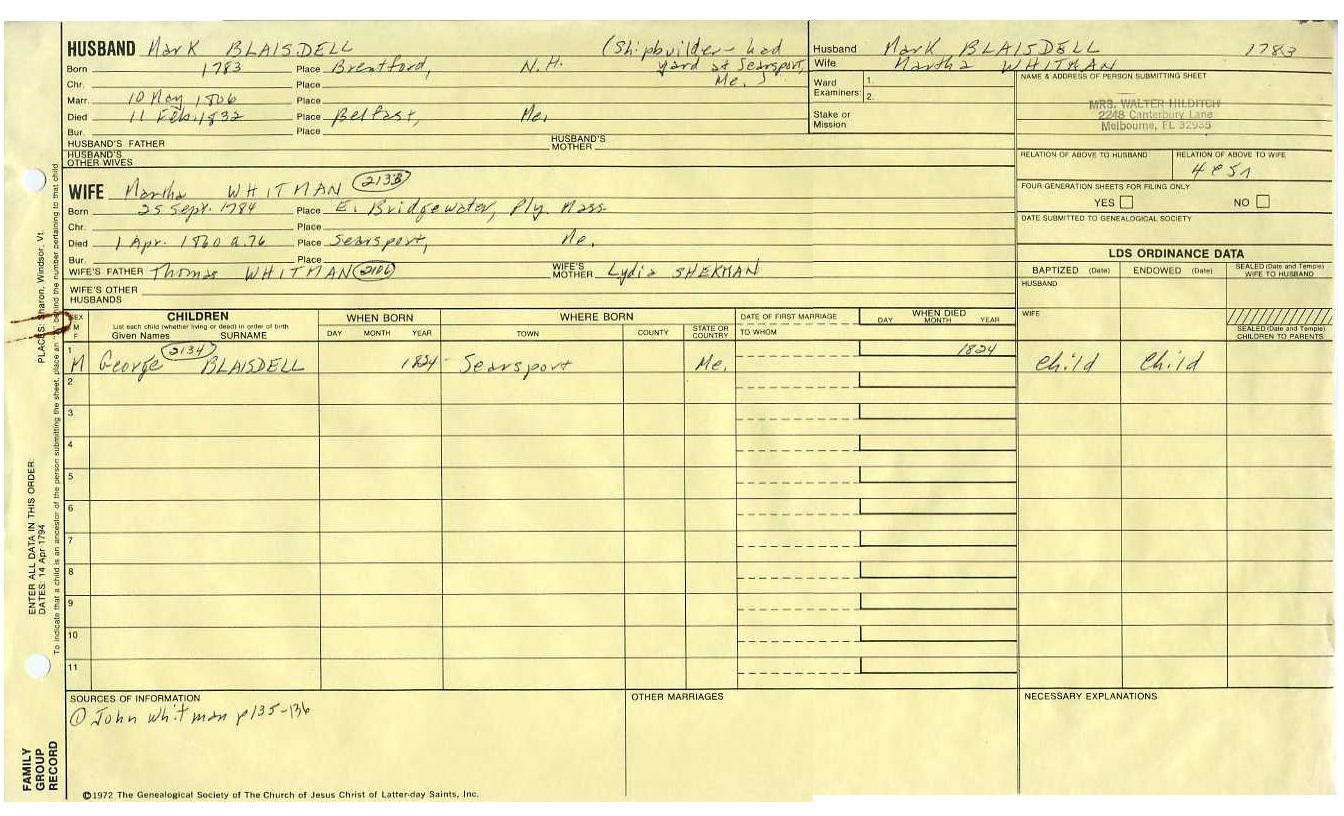 HUSBAND Mark BLAISDELL (Shipbuilder - had
Born 1783 Place Brentford, N.H. yard at Searsport,
Chr. Place Me.)
Marr. 10 May 1806 Place
Died 11 Feb. 1832 Place Belfast, Me.
Bur. Place
HUSBAND'S FATHER HUSBAND'S MOTHER
HUSBAND'S OTHER WIVES
Husband Mark BLAISDELL 1783
Wife Martha WHITMAN
Ward Examiners: 1.
2.
Stake or Mission
NAME & ADDRESS OF PERSON SUBMITTING SHEET
MRS. WALTER HILDITCH
2248 Canterbury Lane
Melbourne, FL 32935
RELATION OF ABOVE TO HUSBAND RELATION OF ABOVE TO WIFE
FOUR GENERATION SHEETS FOR FILING ONLY
YES NO
DATE SUBMITTED TO GENEALOGICAL SOCIETY
WIFE Martha WHITMAN 2133
Born 25 Sept. 1784 Place E. Bridgewater, Ply. Mass.
Chr. Place
Died 1 Apr. 1860 a. 76 Place Searsport, Me.
Bur. Place
WIFE'S FATHER Thomas WHITMAN 2106 WIFE'S MOTHER Lydia SHERMAN
WIFE'S OTHER HUSBANDS
LDS ORDINANCE DATA
BAPTIZED (Date) ENDOWED (Date) SEALED (Date and Temple) WIFE TO HUSBAND
HUSBAND
WIFE
SEALED (Date and Temple) CHILDREN TO PARENTS
SEX M F
CHILDREN
List each child (whether living or dead) in order of birth
Given Names SURNAME
WHEN BORN
DAY MONTH YEAR
WHERE BORN
TOWN COUNTY STATE OR COUNTRY
DATE OF FIRST MARRIAGE
TO WHOM
WHEN DIED
DAY MONTH YEAR
1 M George 2134 BLAISDELL 1824 Searsport Me. 1824 Child Child
2
3
4
5
6
7
8
9
10
11
SOURCES OF INFORMATION
① John Whitman p 135-136
OTHER MARRIAGES
NECESSARY EXPLANATIONS
©1972 The Genealogical Society of The Church of Jesus Christ of Latter-day Saints, Inc.
FAMILY GROUP RECORD
ENTER ALL DATA IN THIS ORDER:
DATES: 14 Apr 1794
PLACES: Sharon, Windsor, Vt.
To indicate that a child is an ancestor of the person submitting the sheet, place an "X" behind the number pertaining to that child